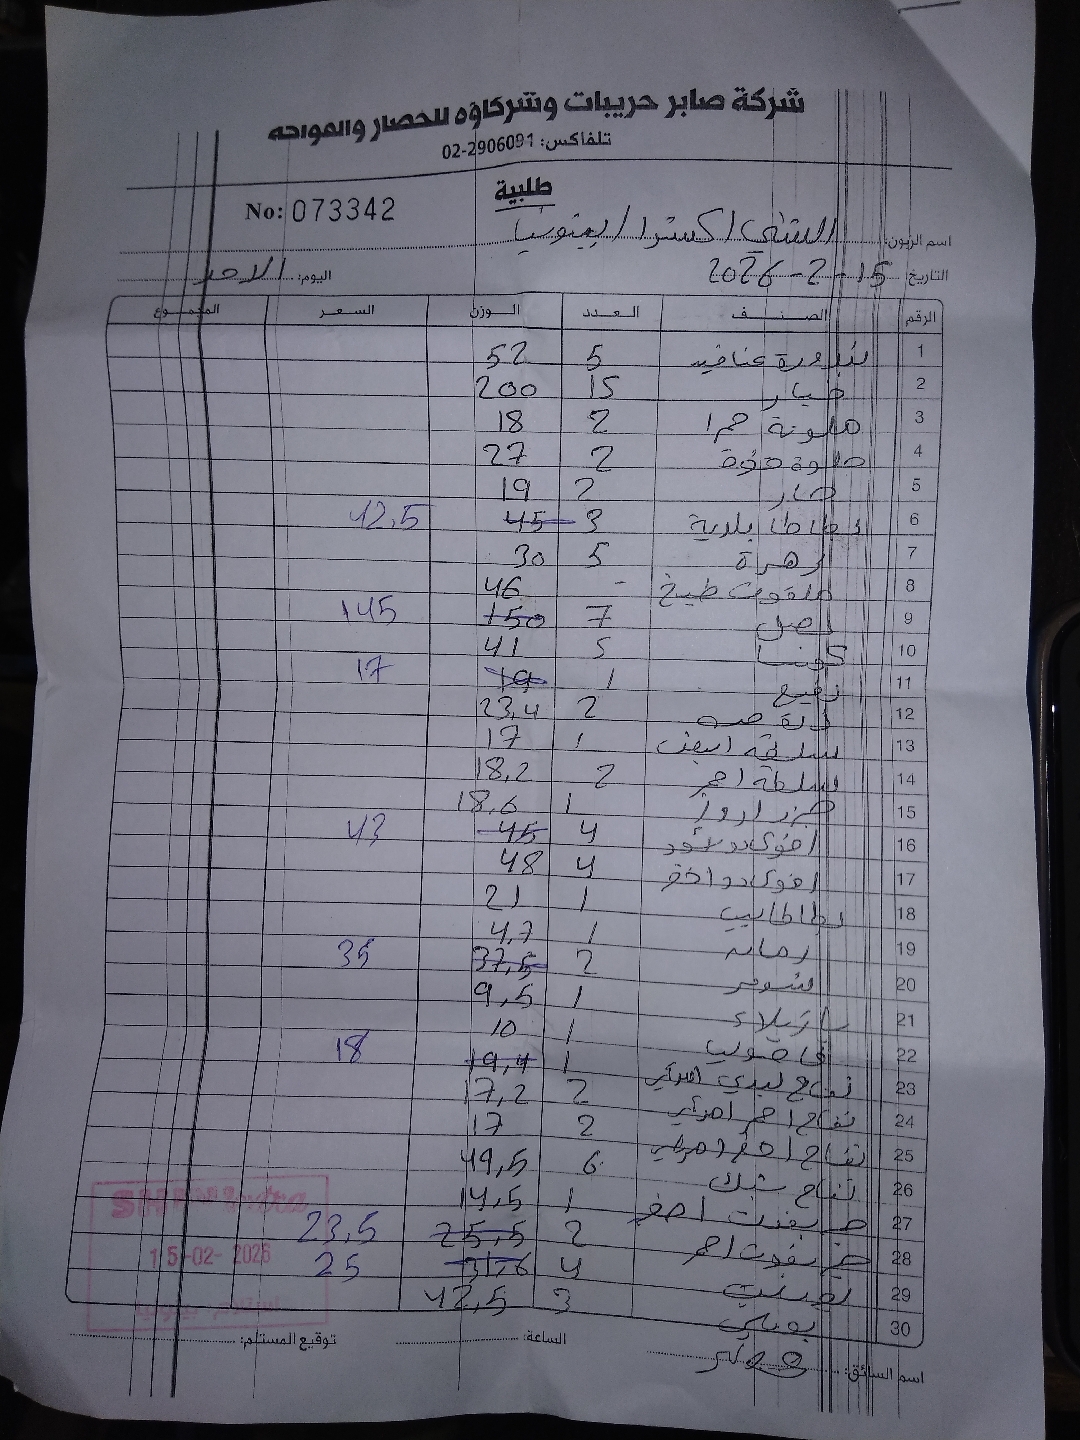 شركة صابر حريبات وشركاؤه للخضار والفواكه
تلفاكس: 02-2906091
طلبية
No: 073342
اسم الزبون: الشني اكسترا /
التاريخ: 15-2-2026 اليوم: الاحد
الرقم الصنف العدد الوزن السعر المجموع
1 بندورة عناقيد 5 52
2 خيار 15 200
3 ملونة حمرا 2 18
4 حلوة 2 27
5 حار 2 19
6 بطاطا بلدية 3 45 42,5
7 زهرة 5 30
8 ملفوف طبيخ - 46
9 بصل 7 150 145
10 كوسا 5 41
11 1 19 17
12 2 23,4
13 سلطة ابيض 1 17
14 سلطة احمر 2 18,2
15 جزر 1 18,6
16 افوكادو اسود 4 45 43
17 افوكادو اخضر 4 48
18 بطاطا بيبي 1 21
19 رمان 1 4,7
20 شومر 2 37,5 35
21 بازيلاء 1 9,5
22 فاصوليا 1 10
23 تفاح ليدي امرأي 1 19,4 18
24 تفاح احمر امرأي 2 17,2
25 تفاح اخضر امرأي 2 17
26 تفاح ستاك 6 49,5
27 جريفوت اصفر 1 14,5
28 جريفوت احمر 2 25,5 23,5
29 4 31,6 25
30 بوملي 3 42,5
15-02-2026
اسم السائق: الساعة: توقيع المستلم: